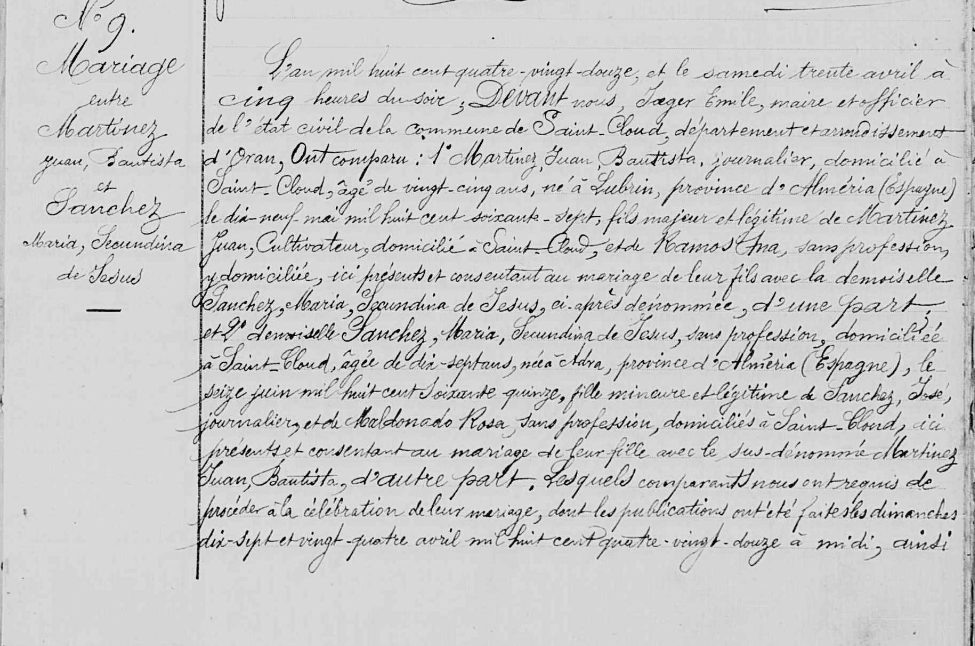 N° 9.
Mariage
entre
Martinez
Juan, Bautista
et
Sanchez
Maria, Secundina
de Jesus
L'an mil huit cent quatre-vingt-douze, et le samedi trente avril à
cinq heures du soir, Devant nous, Jæger Emile, maire et officier
de l'état civil de la commune de Saint-Cloud, département et arrondissement
d'Oran, Ont comparu : 1° Martinez, Juan, Bautista, journalier, domicilié à
Saint-Cloud, âgé de vingt-cinq ans, né à Lubrin, province d'Alméria (Espagne)
le dix-neuf mai mil huit cent soixante-sept, fils majeur et légitime de Martinez
Juan, Cultivateur, domicilié à Saint-Cloud, et de Ramos Ana, sans profession,
y domiciliée, ici présents et consentant au mariage de leur fils avec la demoiselle
Sanchez, Maria, Secundina de Jesus, ci-après dénommée, d'une part,
et 2° demoiselle Sanchez, Maria, Secundina de Jesus, sans profession, domiciliée
à Saint-Cloud, âgée de dix-sept ans, née à Adra, province d'Alméria (Espagne), le
seize juin mil huit cent soixante quinze, fille mineure et légitime de Sanchez, José,
journalier, et de Maldonado Rosa, sans profession, domiciliés à Saint-Cloud, ici
présents et consentant au mariage de leur fille avec le sus-dénommé Martinez
Juan, Bautista, d'autre part. Lesquels comparants nous ont requis de
procéder à la célébration de leur mariage, dont les publications ont été faites les dimanches
dix-sept et vingt-quatre avril mil huit cent quatre-vingt-douze à midi, ainsi